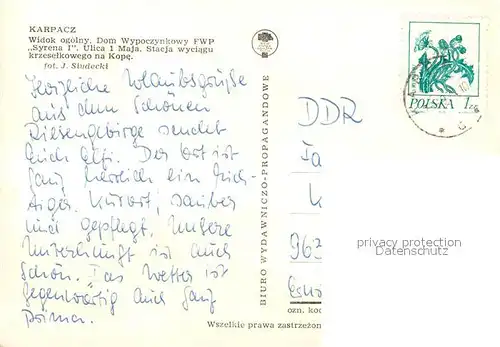 KARPACZ
Widok ogólny. Dom Wypoczynkowy FWP
„Syrena I". Ulica 1 Maja. Stacja wyciągu
krzesełkowego na Kopę.
fot. J. Siudecki
Herzliche Urlaubsgrüße
aus dem Schönen
Riesengebirge sendet
Euch Elfi. Der Ort ist
ganz herrlich ein rich-
tiger Kurort, sauber
und gepflegt, Unsere
Unterkunft ist auch
Schön. Das Wetter ist
gegenwärtig auch ganz
prima.
BIURO WYDAWNICZO-PROPAGANDOWE
POLSKA 1 zł
DDR
963
privacy protection
Datenschutz
ozn. kod
Wszelkie prawa zastrzeżon